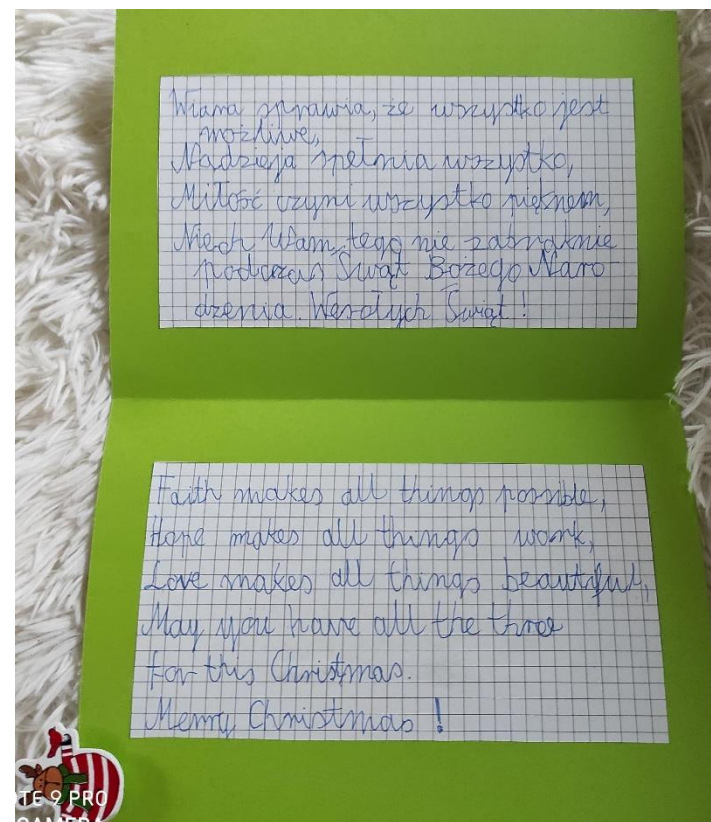 Wiara sprawia, że wszystko jest
możliwe,
Nadzieja spełnia wszystko,
Miłość czyni wszystko pięknem,
Niech Wam tego nie zabraknie
podczas Świąt Bożego Naro
dzenia. Wesołych Świąt!
Faith makes all things possible,
Hope makes all things work,
Love makes all things beautiful,
May you have all the three
for this Christmas.
Merry Christmas!
TE 9 PRO
CAMERA